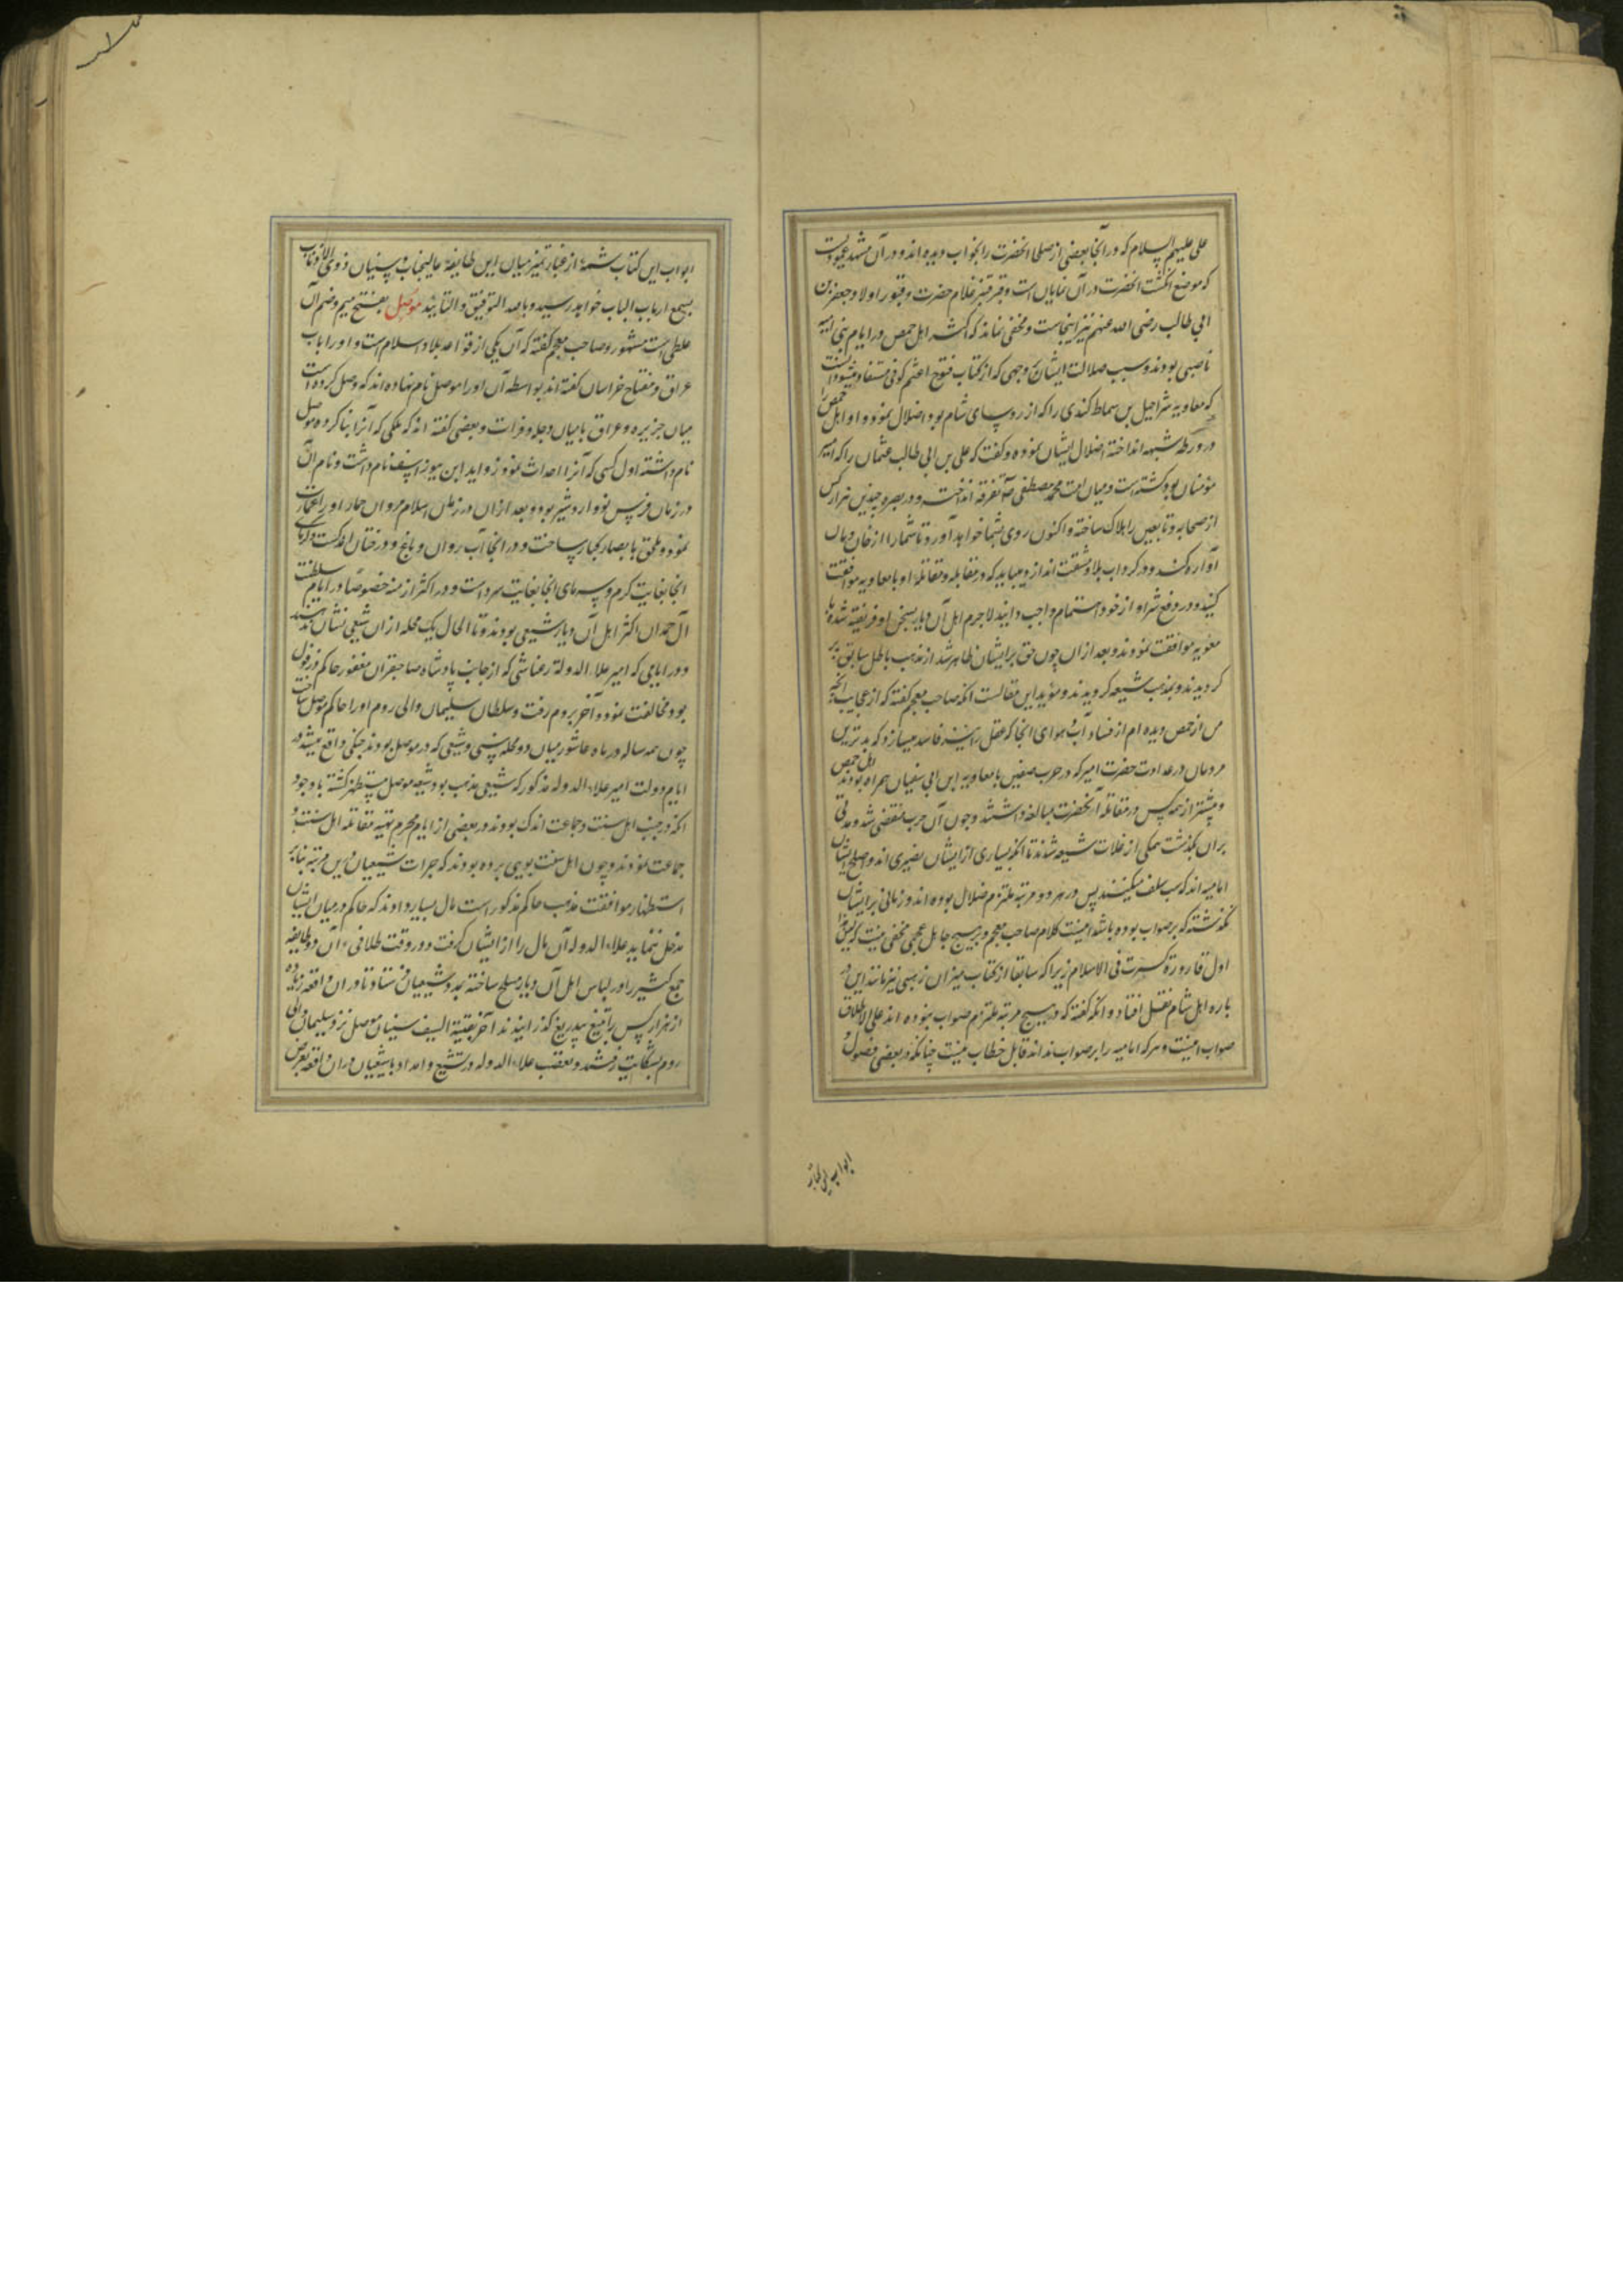 علی علیهم السلام که در آنجا بعضی از صلحا آنحضرت را بخواب دیده اند و در آن مشهد عمودیست
که موضع انگشت آنحضرت در آن نمایان است و قبر قنبر غلام حضرت و قبور اولاد جعفر بن
ابی طالب رضی الله عنهم نیز اینجاست و مخفی نماند که اکثر اهل حمص در ایام بنی امیه
ناصبی بودند و سبب ضلالت ایشان بوجهی که از کتاب فتوح اعثم کوفی مستفاد میشود آنست
که معاویه شراحیل بن سماط کندی را که از رؤسای شام بود اضلال نمود و او اهل حمص را
در ورطه شبهه انداخته اضلال ایشان نموده و گفت که علی بن ابی طالب عثمان را که امیر
مؤمنان بود کشته است و میان امت محمد مصطفی ص تفرقه انداخت و در بصره چندین هزار کس
از صحابه و تابعین را هلاک ساخته و اکنون روی بشما خواهد آورد تا شما را از خان و مان
آواره کند و در گرداب بلا و مشقت اندازد میباید که در مقابله و مقاتله او با معاویه موافقت
کنید و در دفع شر او از خود اهتمام واجب دانید لاجرم اهل آن دیار بسخن او فریفته شده با
معویه موافقت نمودند و بعد از آن چون حق بر ایشان ظاهر شد از مذهب باطل سابق بر
گردیدند و بمذهب شیعه گرویدند و مؤید این مقالست آنکه صاحب معجم گفته که از عجایب آنچه
من از حمص دیده ام از فساد آب و هوای آنجا که عقل را نیز فاسد میسازد که بدترین
مردمان در عداوت حضرت امیر که در حرب صفین با معاویه ابن ابی سفیان همراه بودند اهل حمص
و بیشتر از همه کس در مقاتله آنحضرت مبالغه داشتند و چون آن حرب منقضی شد و مدتی
بر آن بگذشت همگی از غلات شیعه شدند تا آنکه بسیاری از ایشان نصیری اند و اصلح ایشان
امامیه اند که سب سلف میکنند پس در هر دو مرتبه ملتزم ضلال بوده اند و زمانی بر ایشان
نگذشته که بر صواب بوده باشد اینست کلام صاحب معجم و بر هیچ جاهل عجمی مخفی نیست که لیس هذا
اول قارورة کسرت فی الاسلام زیرا که سابقا از کتاب میزان ذهبی نیز مانند این در
باره اهل شام نقل افتاد و آنکه گفته که در هیچ مرتبه ملتزم صواب نبوده اند علی الاطلاق
صواب نیست و هر که امامیه را بر صواب نداند قابل خطاب نیست چنانکه در بعضی فصول و
ابواب این کتاب
ابواب این کتاب شمه از غبار تمیز میان این طایفه عالیجناب و سنیان ذوی الاذناب
بسمع ارباب الباب خواهد رسید و بالله التوفیق و التایید موصل بفتح میم و ضم آن
غلطی است مشهور و صاحب معجم گفته که آن یکی از قواعد بلاد اسلام است و او را باب
عراق و مفتاح خراسان گفته اند بواسطه آن او را موصل نام نهاده اند که وصل کرده است
میان جزیره و عراق یا میان دجله و فرات و بعضی گفته اند که ملکی که آنرا بنا کرده موصل
نام داشته اول کسی که آنرا احداث نمود زواید ابن بیوراسف نام داشت و نام آن
در زمان فرس نو اردشیر بود و بعد از آن در زمان اسلام مروان حمار او را عمارت
نمود و ملحق بامصار کبار ساخت و در آنجا آب روان و باغ و درختان اندکست و گرمای
آنجا بغایت گرم و سرمای آنجا بغایت سرد است و در اکثر ازمنه خصوصا در ایام سلطنت
آل حمدان اکثر اهل آن دیار شیعی بودند و تا الحال یک محله از آن شیعی نشان
و در ایامی که امیر علاء الدوله رعناشی که از جانب پادشاه صاحبقران مغفور حاکم دزفول
بود مخالفت نمود و آخر بروم رفت و سلطان سلیمان والی روم او را حاکم موصل ساخت
چون همه ساله در ماه عاشور میان دو محله سنی و شیعی که در موصل بودند جنگی واقع میشد در
ایام دولت امیر علاء الدوله مذکور که شیعی مذهب بود شیعه موصل مستظهر گشته با وجود
آنکه در جنب اهل سنت و جماعت اندک بودند در بعضی از ایام محرم تهیه مقاتله اهل سنت و
جماعت نمودند و چون اهل سنت بویی برده بودند که جرات شیعیان درین مرتبه بنابر
استظهار موافقت مذهب حاکم مذکور است مال بسیار دادند که حاکم در میان ایشان
مدخل ننماید علاء الدوله آن مال را از ایشان گرفت و در وقت تلاقی آن دو طایفه
جمع کثیر را در لباس اهل آن دیار مسلح ساخته بمدد شیعیان فرستاد تا در آن واقعه زیاده
از هزار کس را بتیغ بیدریغ گذرانیدند آخر بقیة السیف سنیان موصل نزد سلیمان والی
روم بشکایت رفتند و تعصب علاء الدوله در تشیع و امداد با شیعیان در آن واقعه بعرض